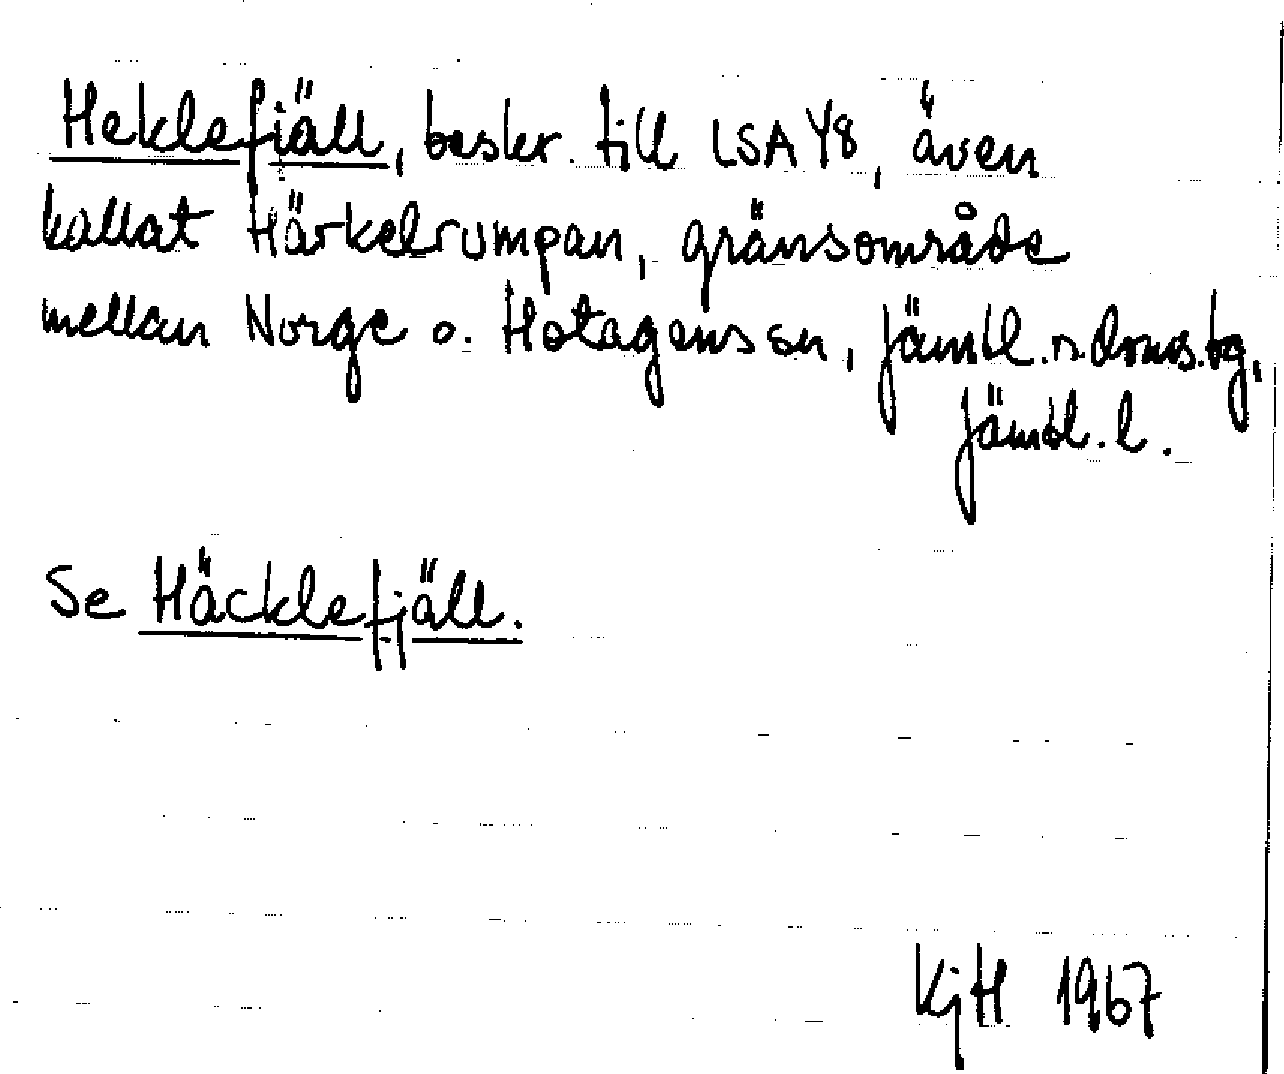 Heklefjäll, beskr. till LSA Y8, även
kallat Härkelrumpan, gränsområde
mellan Norge o. Hotagens sn, Jämtl. n. doms.bg,
Jämtl. l.
Se Häcklefjäll.
KjH 1967